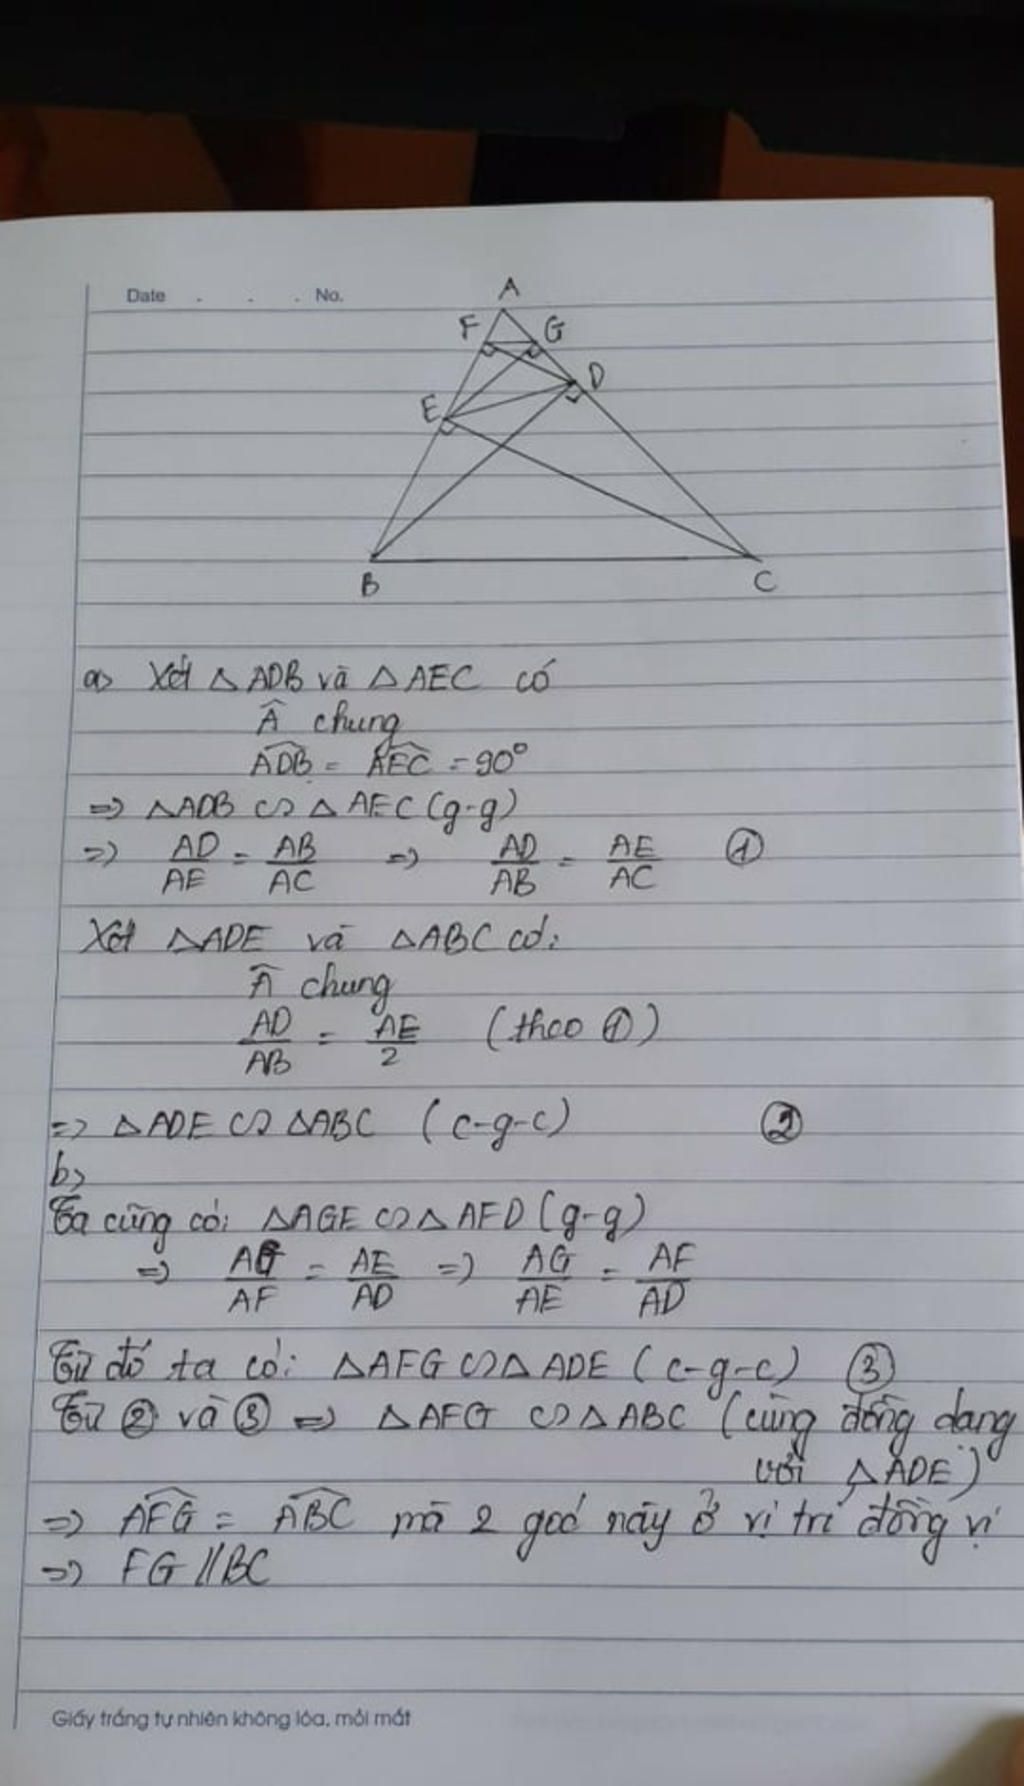 Date . . . No.
A
F G
D
E
B C
a) Xét △ADB và △AEC có
Â chung
ADB̂ = AEĈ = 90°
=> △ADB ∽ △AEC (g-g)
=> AD/AE = AB/AC => AD/AB = AE/AC ①
Xét △ADE và △ABC có:
Â chung
AD/AB = AE/2 (theo ①)
=> △ADE ∽ △ABC (c-g-c) ②
b)
Ta cũng có: △AGE ∽ △AFD (g-g)
=> AG/AF = AE/AD => AG/AE = AF/AD
Từ đó ta có: △AFG ∽ △ADE (c-g-c) ③
Từ ② và ③ => △AFG ∽ △ABC (cùng đồng dạng
với △ADE)
=> AFĜ = ABĈ mà 2 góc này ở vị trí đồng vị
=> FG // BC
Giấy trắng tự nhiên không lóa, mỏi mắt